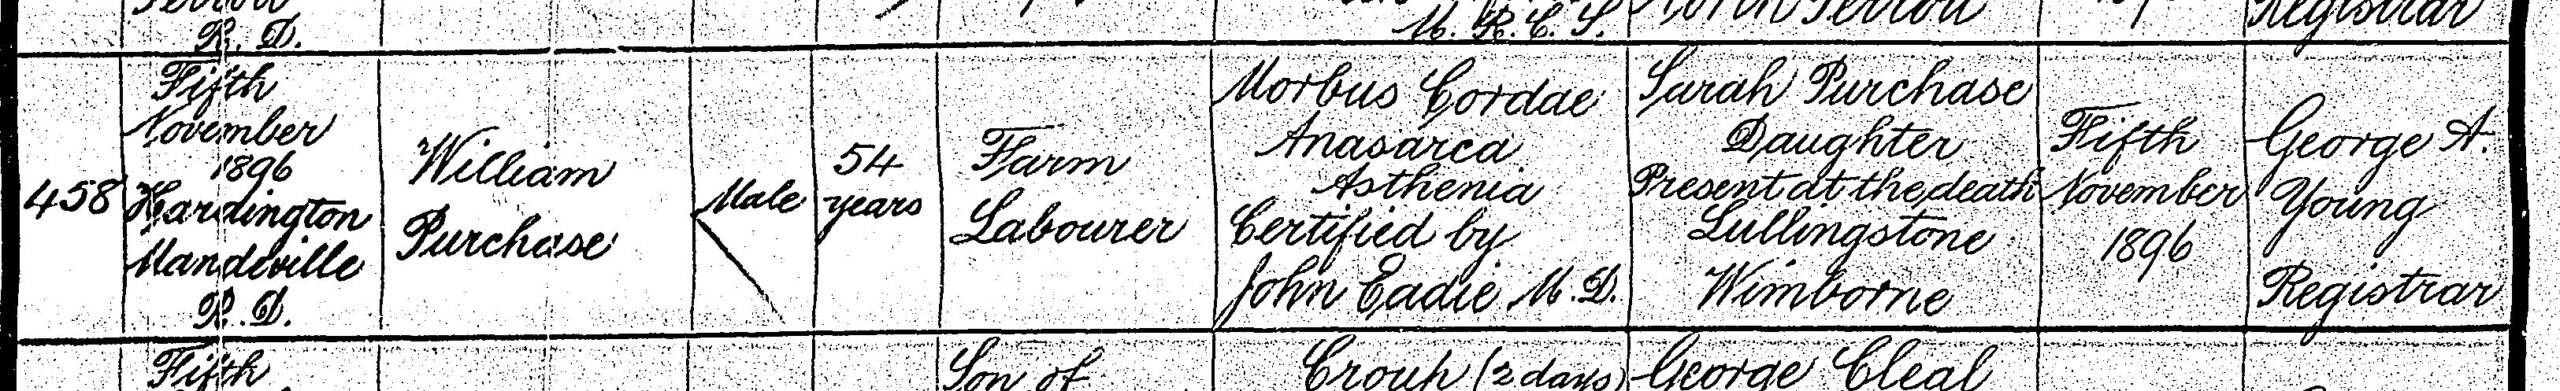 R. D.
M. R. C. S.
Registrar
458
Fifth
November
1896
Hardington
Mandeville
R. D.
William
Purchase
Male
54
years
Farm
Labourer
Morbus Cordae
Anasarca
Asthenia
Certified by
John Eadie M. D.
Sarah Purchase
Daughter
Present at the death
Lullingstone
Wimborne
Fifth
November
1896
George A.
Young
Registrar
Fifth
Son of
Crouh (2 days)
George Cleal